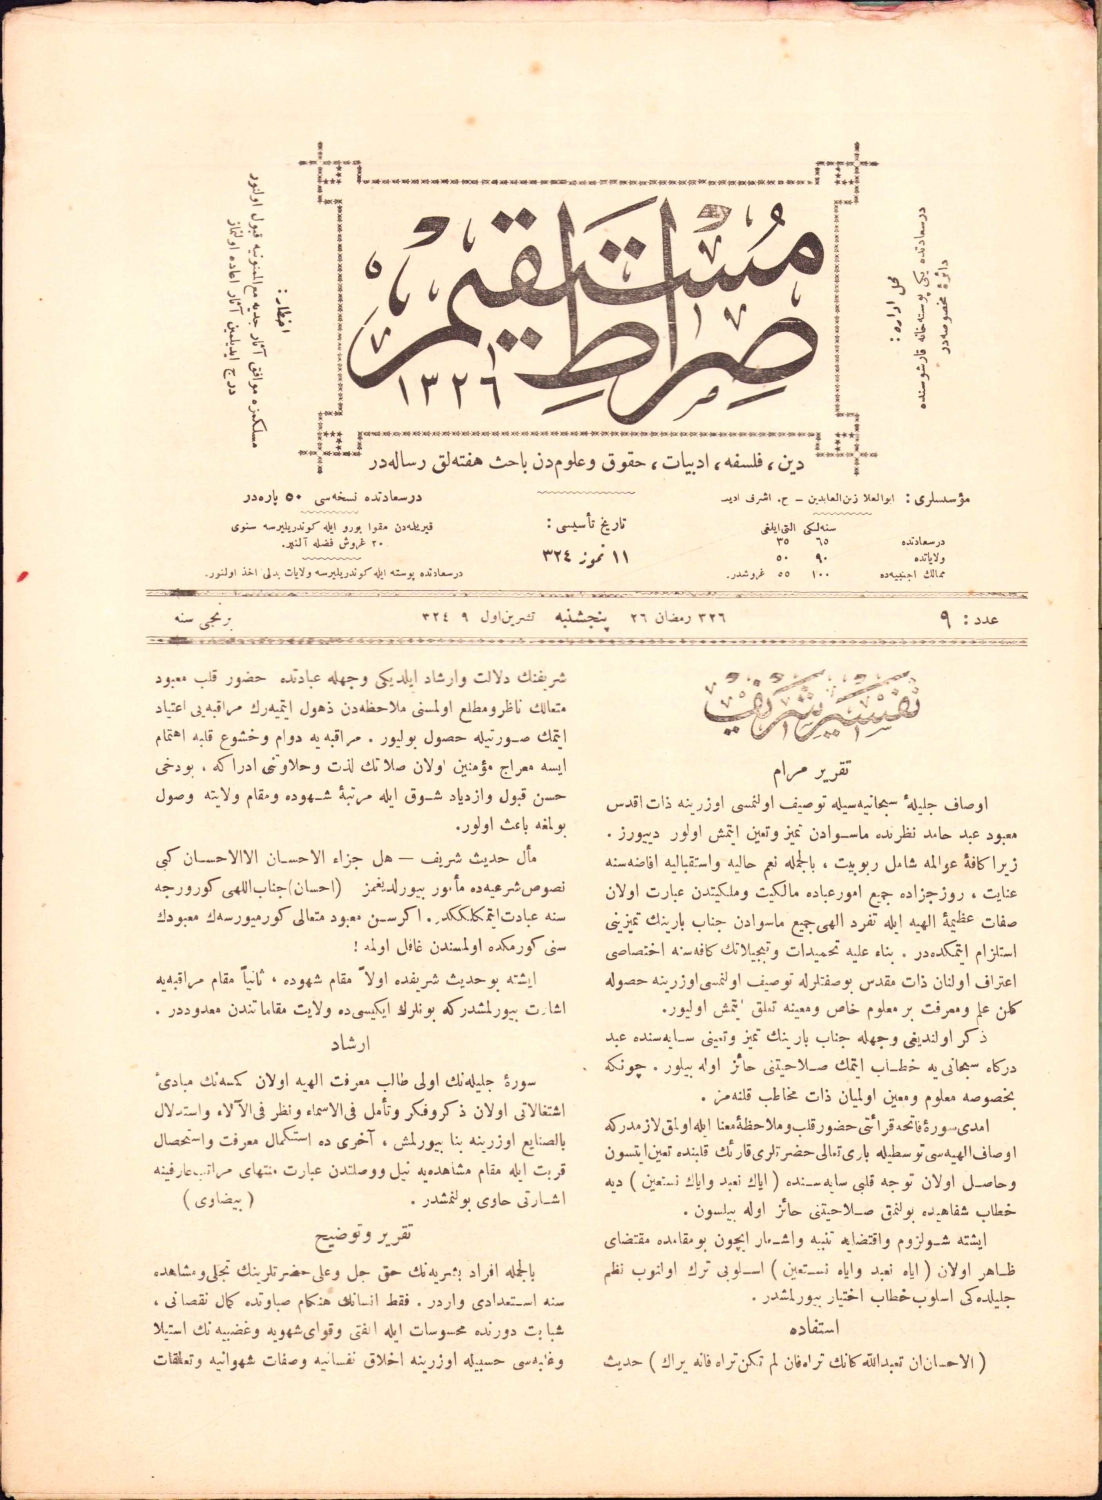 صراط مستقيم
١٣٢٦
محل اداره :
درسعادتده يكى پوسته‌خانه قارشوسنده
دائرهٔ مخصوصه‌در
اخطار :
مسلكمزه موافق آثار جديه مع‌الممنونيه قبول اولنور
درج ايديلمين آثار اعاده اولنماز
دين ، فلسفه ، ادبيات ، حقوق وعلوم‌دن باحث هفته‌لق رساله‌در
مؤسسلرى : ابوالعلا زين‌العابدين – ح. اشرف اديب
سنه‌لكى التى‌ايلغى
درسعادتده ٦٥ ٣٥
ولاياتده ٩٠ ٥٠
ممالك اجنبيه‌ده ١٠٠ ٥٥ غروشدر.
تاريخ تأسيسى :
١١ تموز ٣٢٤
درسعادتده نسخه‌سى ٥٠ پاره‌در
قيريلمه‌دن مقوا بورو ايله كوندريليرسه سنوى
٢٠ غروش فضله آلنير.
درسعادتده پوسته ايله كوندريليرسه ولايات بدلى اخذ اولنور.
عدد : ٩ ٣٢٦ رمضان ٢٦ پنجشنبه تشرين‌اول ٩ ٣٢٤ برنجى سنه
تفسير شريف
تقرير مرام
اوصاف جليلهٔ سبحانيه‌سيله توصيف اولنمسى اوزرينه ذات اقدس
معبود عبد حامد نظرنده ماسوادن تميز وتعين ايتمش اولور دييورز .
زيرا كافهٔ عوالمه شامل ربوبيت ، بالجمله نعم حاليه واستقباليه افاضه‌سنه
عنايت ، روزجزاده جميع امورعباده مالكيت وملكيتدن عبارت اولان
صفات عظيمهٔ الهيه ايله تفرد الهى‌جميع ماسوادن جناب بارينك تميزينى
استلزام ايتمكده‌در . بناء عليه تحميدات وتبجيلاتك كافه‌سنه اختصاصى
اعتراف اولنان ذات مقدس بوصفتلرله توصيف اولنمسى‌اوزرينه حصوله
كلن علم ومعرفت بر معلوم خاص ومعينه تعلق ايتمش اوليور.
ذكر اولنديغى وجهله جناب بارينك تميز وتعينى سايه‌سنده عبد
دركاه سبحانى‌يه خطاب ايتمك صلاحيتنى حائز اوله بيلور . چونكه
بخصوصه معلوم ومعين اولميان ذات مخاطب قلنه‌مز .
امدى‌سورۀ‌فاتحه‌قرائتى‌حضورقلب‌وملاحظهٔ‌معنا ايله‌اولمق‌لازمدركه
اوصاف‌الهيه‌سى‌توسطيله بارى‌تعالى‌حضرتلرى‌قارئك قلبنده تعين‌ايتسون
وحاصل اولان توجه قلبى سايه‌سنده ( اياك نعبد واياك نستعين ) ديه
خطاب شفاهيده بولنمق صلاحيتنى حائز اوله بيلسون .
ايشته شو‌لزوم واقتضايه تنبيه واشعار ايچون بومقامده مقتضاى
ظاهر اولان ( اياه نعبد واياه نستعين ) اسلوبى ترك اولنوب نظم
جليلده‌كى اسلوب‌خطاب اختيار بيورلمشدر .
استفاده
( الاحسان‌ان تعبدالله كانك تراه‌فان لم تكن‌تراه فانه يراك ) حديث
شريفنك دلالت وارشاد ايلديكى وجهله عبادتده حضور قلب معبود
متعالك ناظرومطلع اولمسنى ملاحظه‌دن ذهول ايتميه‌رك مراقبه‌يى اعتياد
ايتمك صورتيله حصول بوليور . مراقبه‌يه دوام وخشوع قلبه اهتمام
ايسه معراج مؤمنين اولان صلاتك لذت وحلاوتنى ادراكه ، بودخى
حسن قبول وازدياد شوق ايله مرتبهٔ شهوده ومقام ولايته وصول
بولمغه باعث اولور.
مأل حديث شريف – هل جزاء الاحسان الاالاحسان كبى
نصوص‌شرعيه‌ده مأمور بيورلديغمز (احسان)جناب‌اللهى كورورجه
سنه عبادت‌ايتمكلكدر. اكرسن معبود متعالى كورميورسه‌ك معبودك
سنى كورمكده اولمسندن غافل اولمه !
ايشته بوحديث شريفده اولاً مقام شهوده ، ثانياً مقام مراقبه‌يه
اشارت بيورلمشدركه بونلرك ايكيسى‌ده ولايت مقاماتندن معدوددر .
ارشاد
سورۀ جليله‌نك اولى طالب معرفت الهيه اولان كمسه‌نك مبادئ
اشتغالاتى اولان ذكروفكر وتأمل فى‌الاسماء ونظر فى‌الآلاء واستدلال
بالصنايع اوزرينه بنا بيورلمش ، آخرى ده استكمال معرفت واستحصال
قربت ايله مقام مشاهده‌يه نيل ووصلتدن عبارت منتهاى مراتب‌عارفينه
اشارتى حاوى بولنمشدر . ( بيضاوى )
تقرير وتوضيح
بالجمله افراد بشريه‌نك حق جل وعلى حضرتلرينك تجلى‌ومشاهده
سنه استعدادى واردر . فقط انسانك هنكام صباوتده كمال نقصانى ،
شبابت دورنده محسوسات ايله الفتى وقواى‌شهويه وغضبيه نك استيلا
وغلبه‌سى حسبيله اوزرينه اخلاق نفسانيه وصفات شهوانيه وتعلقات